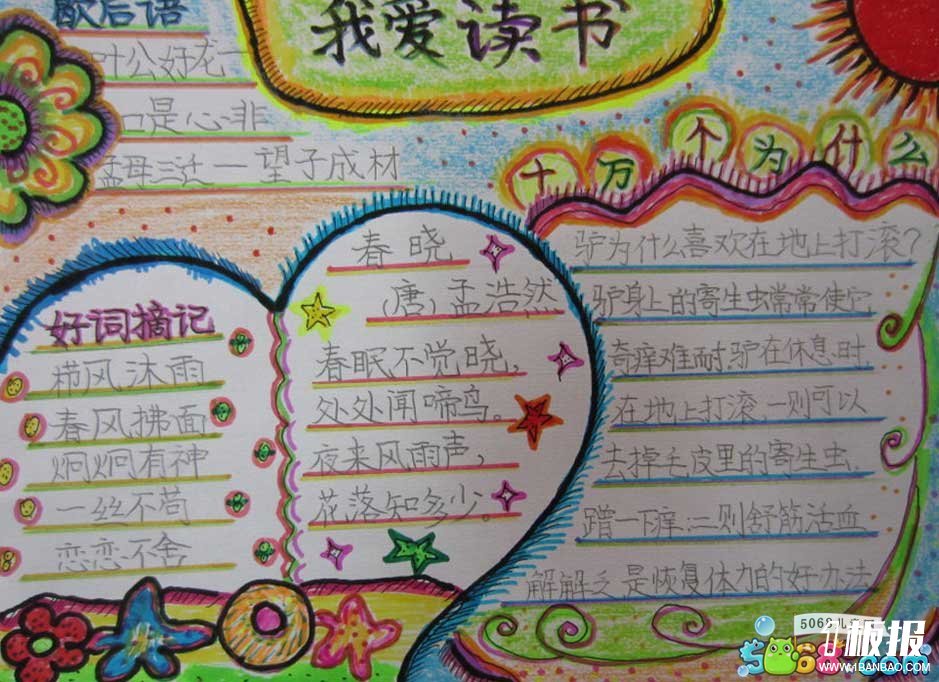 我爱读书
歇后语
叶公好龙一
口是心非
孟母三迁一望子成材
十万个为什么
驴为什么喜欢在地上打滚?
驴身上的寄生虫常常使它
奇痒难耐,驴在休息时
在地上打滚,一则可以
去掉毛皮里的寄生虫,
蹭一下痒;二则舒筋活血
解解乏,是恢复体力的好办法
春晓
(唐)孟浩然
春眠不觉晓,
处处闻啼鸟。
夜来风雨声,
花落知多少。
好词摘记
栉风沐雨
春风拂面
炯炯有神
一丝不苟
恋恋不舍
5068儿
板报
WWW.1BANBAO.COM